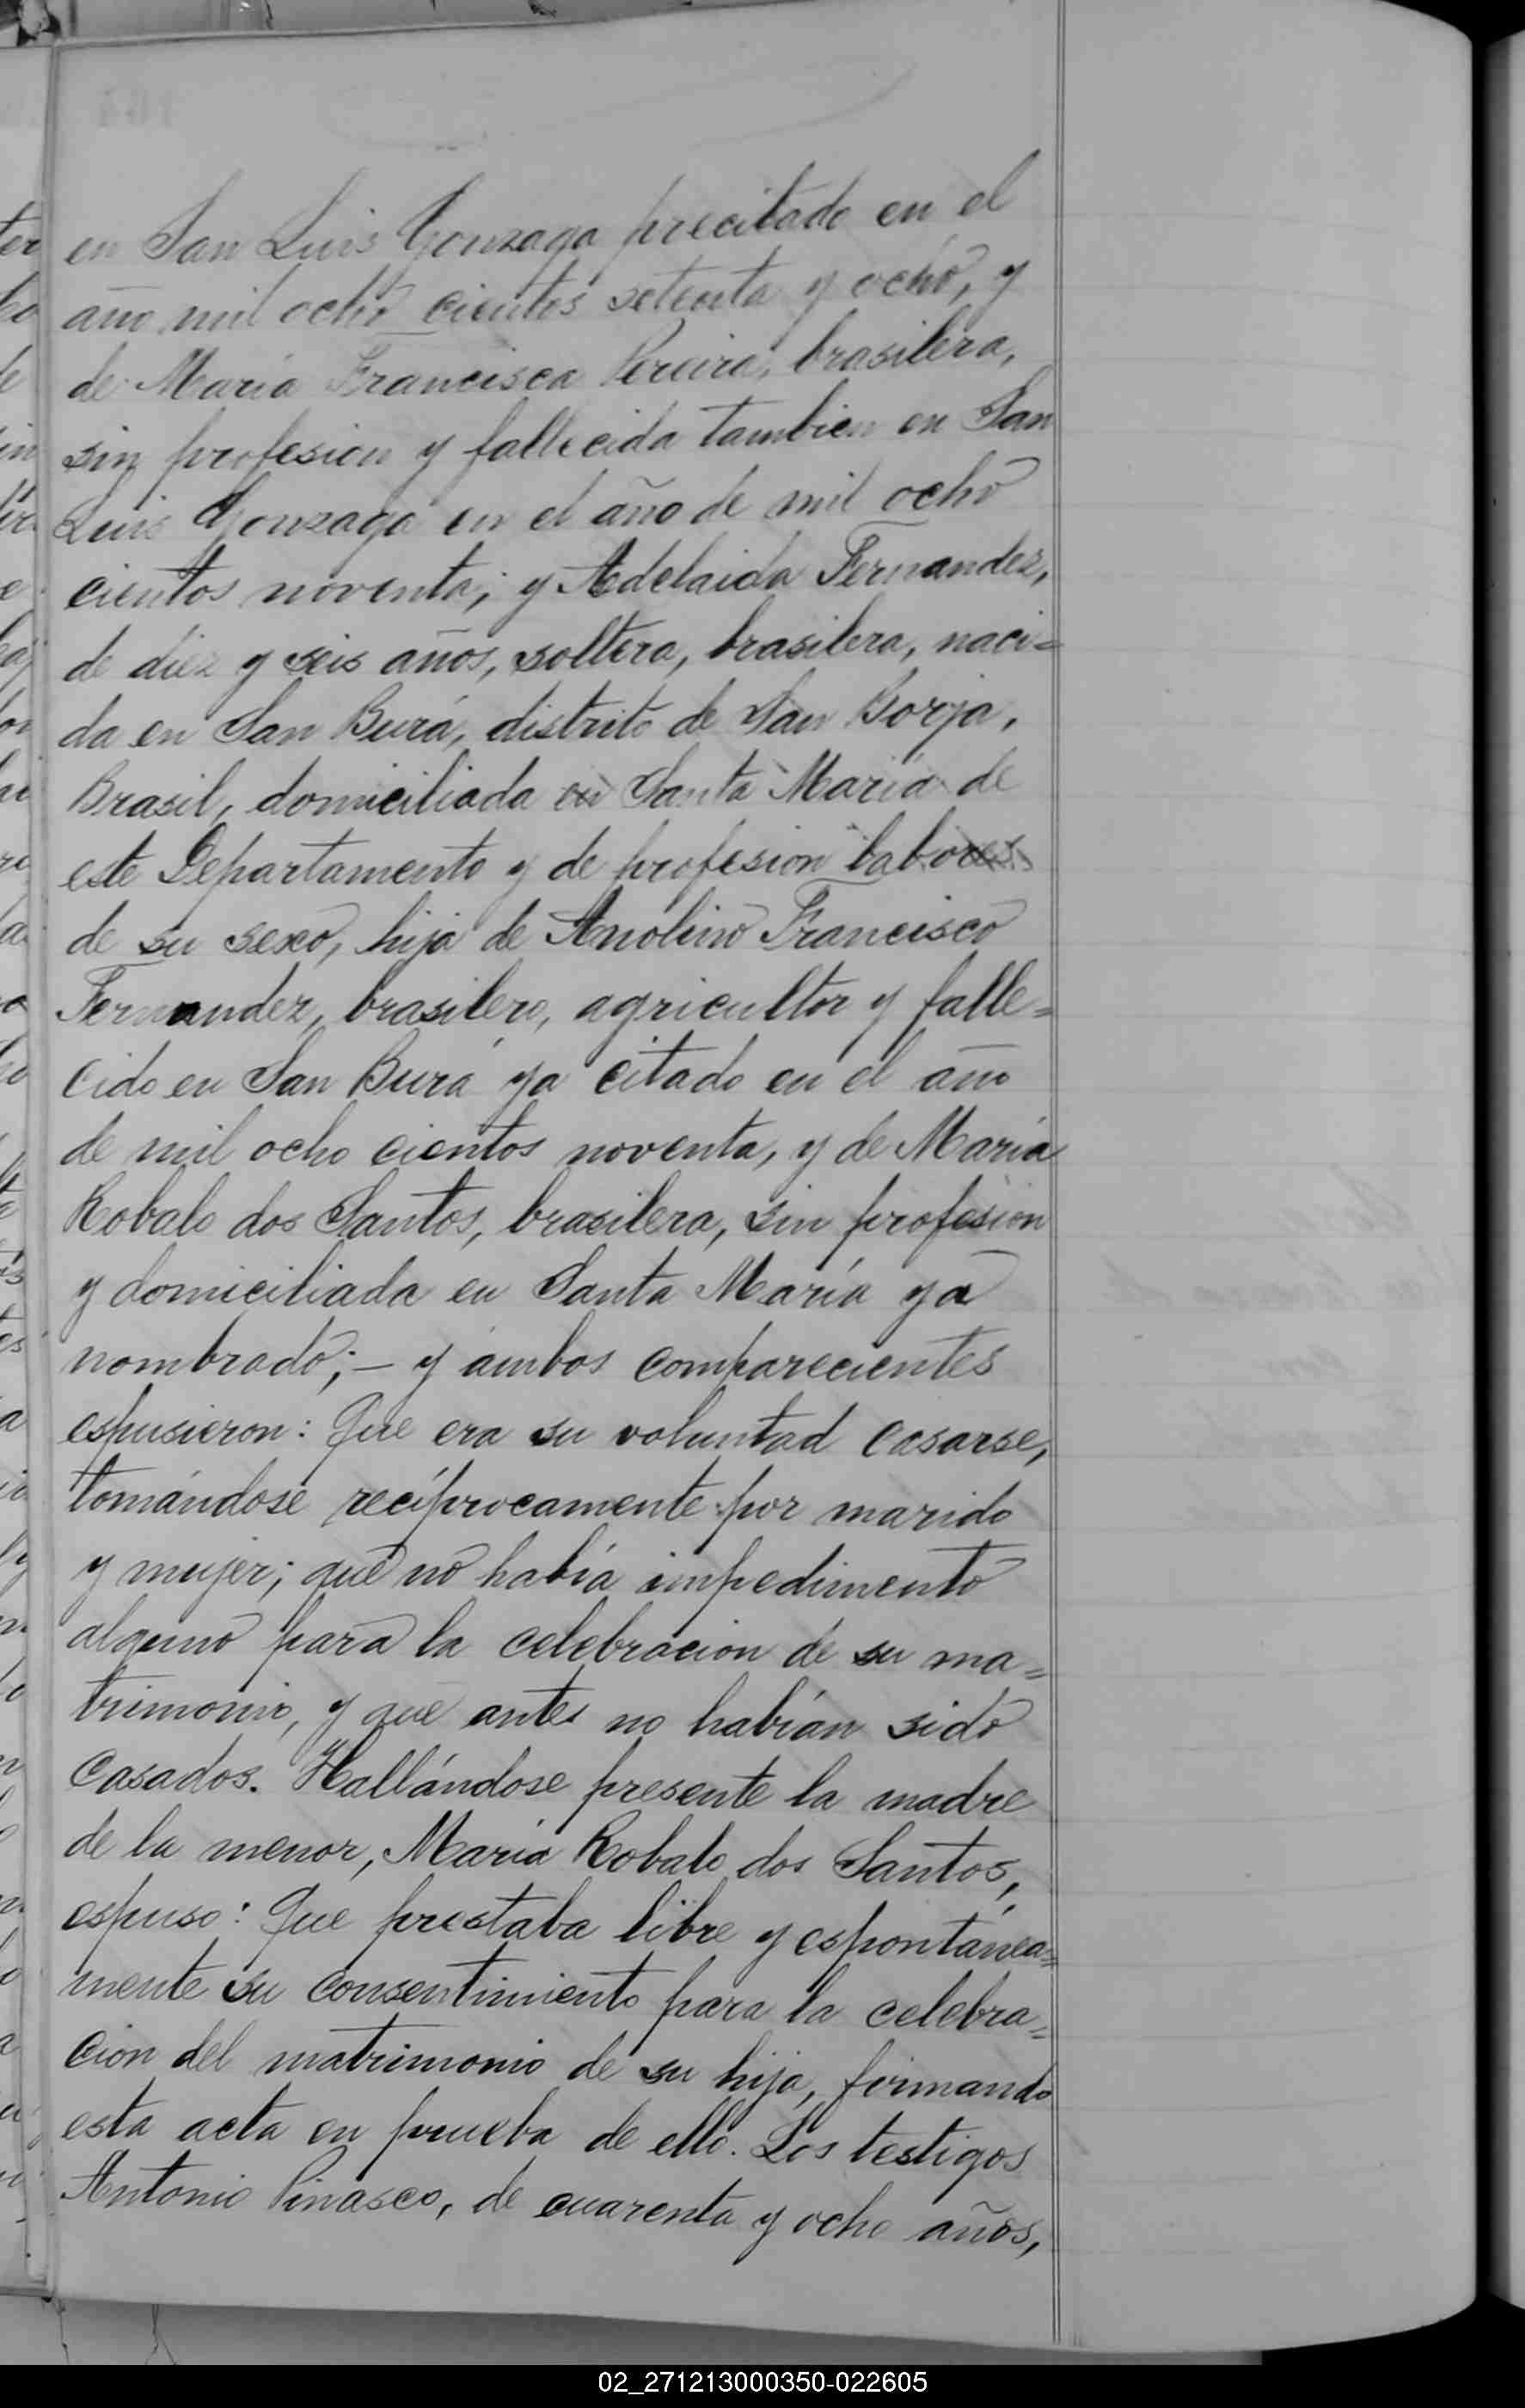 en San Luis Gonzaga precitado en el
año mil ocho cientos setenta y ocho, y
de Maria Francisca Pereira, brasilera,
sin profesion y fallecida tambien en San
Luis Gonzaga en el año de mil ocho
cientos noventa; y Adelaida Fernandez,
de diez y seis años, soltera, brasilera, naci=
da en San Burá, distrito de San Borja,
Brasil, domiciliada en Santa María de
este Departamento y de profesion labores
de su sexo, hija de Anolino Francisco
Fernandez, brasilero, agricultor y falle=
cido en San Burá ya citado en el año
de mil ocho cientos noventa, y de María
Robalo dos Santos, brasilera, sin profesion
y domiciliada en Santa María ya
nombrado; - y ambos comparecientes
espusieron: Que era su voluntad casarse,
tomándose recíprocamente por marido
y mujer; que no había impedimento
alguno para la celebracion de su ma=
trimonio, y que antes no habían sido
casados. Hallándose presente la madre
de la menor, María Robalo dos Santos,
espuso: Que prestaba libre y espontánea=
mente su consentimiento para la celebra=
cion del matrimonio de su hija, firmando
esta acta en prueba de ello. Los testigos
Antonio Pinasco, de cuarenta y ocho años,
02_271213000350-022605